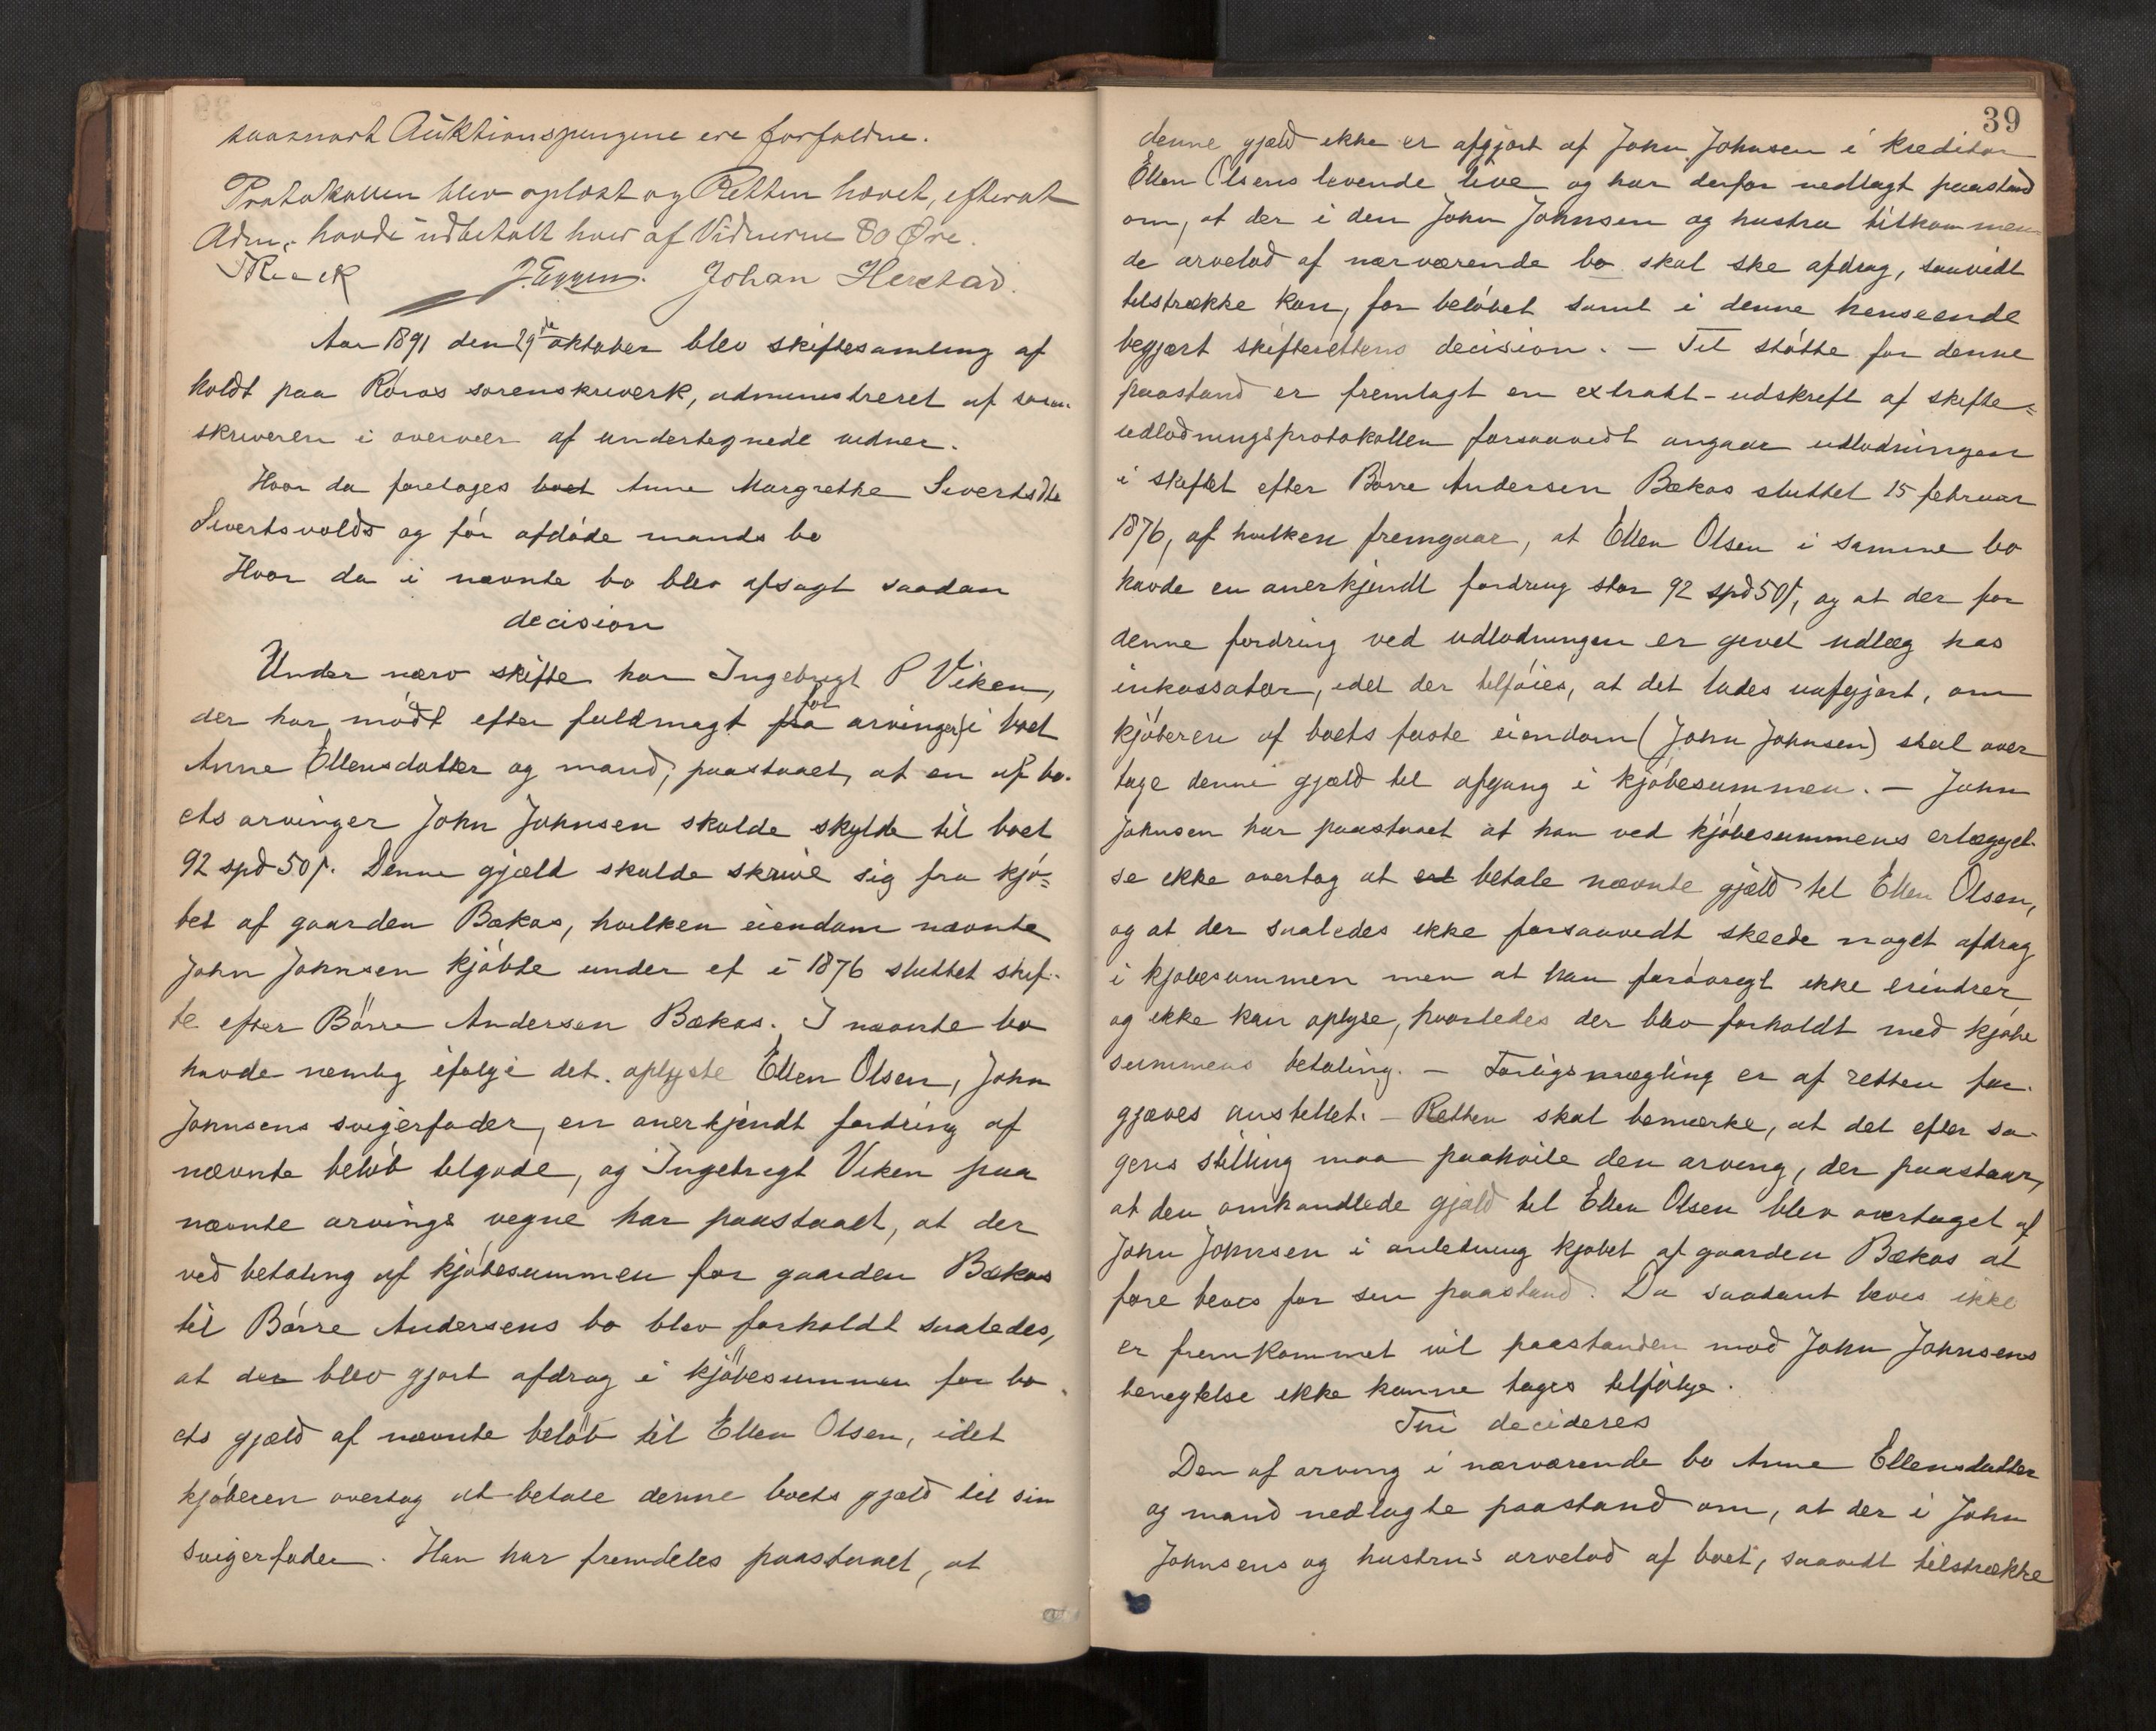 saasnart Auktionspengene ere forfaldne.
Protokollen blev oplæst og Retten hævet, efterat
Adm. havde udbetalt hver af Vidnerne 80 Øre.
Rieck J. Eggen. Johan Herstad.
Aar 1891 den 29de oktober blev skiftesamling af
holdt paa Røros sorenskriverk, administreret af soren-
skriveren i overvær af undertegnede vidner.
Hvor da foretoges boet Anne Margrethe Sivertsdtr
Sivertsvolds og før afdøde mands bo
Hvor da i nævnte bo blev afsagt saadan
decision
Under nærv skifte har Ingebrigt P Viken,
der har mødt efter fuldmagt fra for arvingen i boet
Anne Ellensdatter og mand, paastaaet, at en af bo-
ets arvinger John Johnsen skulde skylde til boet
92 spd 50 s. Denne gjæld skulde skrive sig fra kjø-
bet af gaarden Bækos, hvilken eiendom nævnte
John Johnsen kjøbte under et i 1876 sluttet skif-
te efter Børre Andersen Bækos. I nævnte bo
havde nemlig ifølge det oplyste Ellen Olsen, John
Johnsens svigerfader, en anerkjendt fordring af
nævnte beløb tilgode, og Ingebrigt Viken paa
nævnte arvings vegne har paastaaet, at der
ved betaling af kjøbesummen for gaarden Bækos
til Børre Andersens bo blev forholdt saaledes,
at der blev gjort afdrag i kjøbesummen for bo-
ets gjæld af nævnte beløb til Ellen Olsen, idet
kjøberen overtog at betale denne boets gjæld til sin
svigerfader. Han har fremdeles paastaaet, at
39
denne gjæld ikke er afgjort af John Johnsen i kreditor
Ellen Olsens levende live og har derfor nedlagt paastand
om, at der i den John Johnsen og hustru tilkommen
de arvelod af nærværende bo skal ske afdrag, saavidt
tilstrække kan, for beløbet samt i denne henseende
begjært skifterettens decision. – Til støtte for denne
paastand er fremlagt en extrakt-udskrift af skifte-
udlodningsprotokollen forsaavidt angaar udlodningen
i skiftet efter Børre Andersen Bækos sluttet 15 februar
1876, af hvilken fremgaar, at Ellen Olsen i samme bo
havde en anerkjendt fordring stor 92 spd 50 s, og at der for
denne fordring ved udlodningen er givet udlæg hos
inkassator, idet der tilføies, at det lades uafgjort, om
kjøberen af boets faste eiendom (John Johnsen) skal over
tage denne gjæld til afgang i kjøbesummen. – John
Johnsen har paastaaet at han ved kjøbesummens erlæggel-
se ikke overtog at betale nævnte gjæld til Ellen Olsen,
og at der saaledes ikke forsaavidt skeede noget afdrag
i kjøbesummen men at han forøvrigt ikke erindrer
og ikke kan oplyse, hvorledes der blev forholdt med kjøbe
summens betaling. – Forligsmægling er af retten for-
gjæves anstillet. – Retten skal bemærke, at det efter sa-
gens stilling maa paahvile den arving, der paastaar,
at den omhandlede gjæld til Ellen Olsen blev overtaget af
John Johnsen i anledning kjøbet af gaarden Bækos at
føre bevis for sin paastand. Da saadant bevis ikke
er fremkommet vil paastanden mod John Johnsens
benegtelse ikke kunne tages tilfølge.
Thi decideres
Den af arving i nærværende bo Anne Ellensdatter
og mand nedlagte paastand om, at der i John
Johnsens og hustrus arvelod af boet, saavidt tilstrække